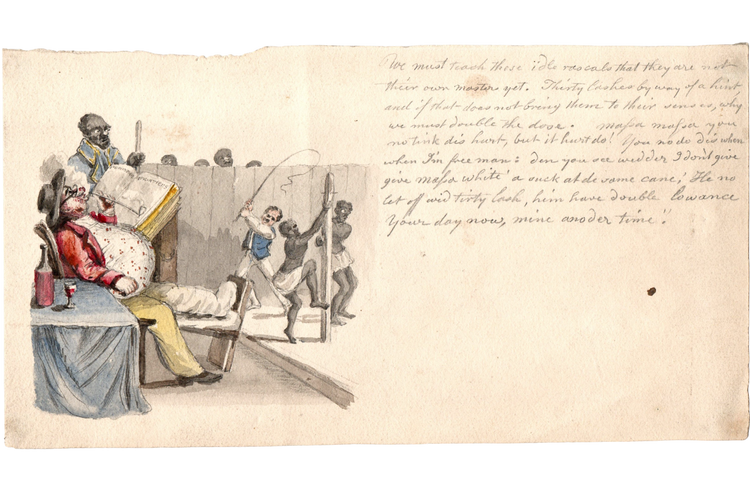 We must teach those idle rascals that they are not
their own masters yet. Thirty lashes by way of a hint,
and if that does not bring them to their senses, why
we must double the dose. Maſsa maſsa you
no tink dis hurt, but it hurt do! You no do dis when
when I'm free man: den you see wedder I don't give
give maſsa white' a suck at de same cane; He no
let off wid tirty lash, him have double lowance
Your day now, mine anoder time!!